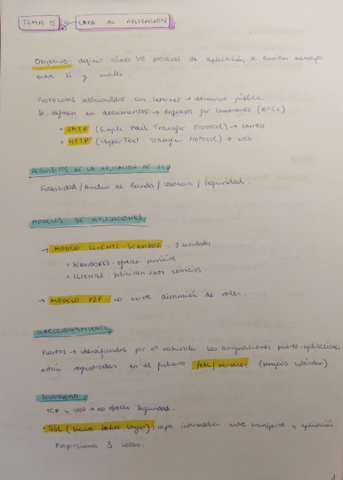 TEMA 5: CAPA de APLICACIÓN
Objetivo: definir cómo los procesos de aplicación se envían mensajes
entre sí y cuáles.
Protocolos relacionados con Internet → dominio público.
Se definen en documentos → Requests for Comments (RFCs)
SMTP (Simple Mail Transfer Protocol) → correo
HTTP (HyperText Transfer Protocol) → web.
REQUISITOS DE LA APLICACIÓN DE RED
Fiabilidad / Ancho de Banda / Latencia / Seguridad.
MODELOS DE APLICACIONES
→ MODELO CLIENTE SERVIDOR: 2 entidades
SERVIDORES: ofrecen servicios
CLIENTES: solicitan esos servicios
→ MODELO P2P: no existe distinción de roles.
DIRECCIONAMIENTO
Puertos → identificados por nº naturales. Las asignaciones puerto-aplicaciones
están registradas en el fichero /etc/services (servicios estándar)
SEGURIDAD
TCP y UDP → no ofrecen seguridad.
SSL (Secure Sockets Layer): capa intermedia entre transporte y aplicación
Proporciona S
1